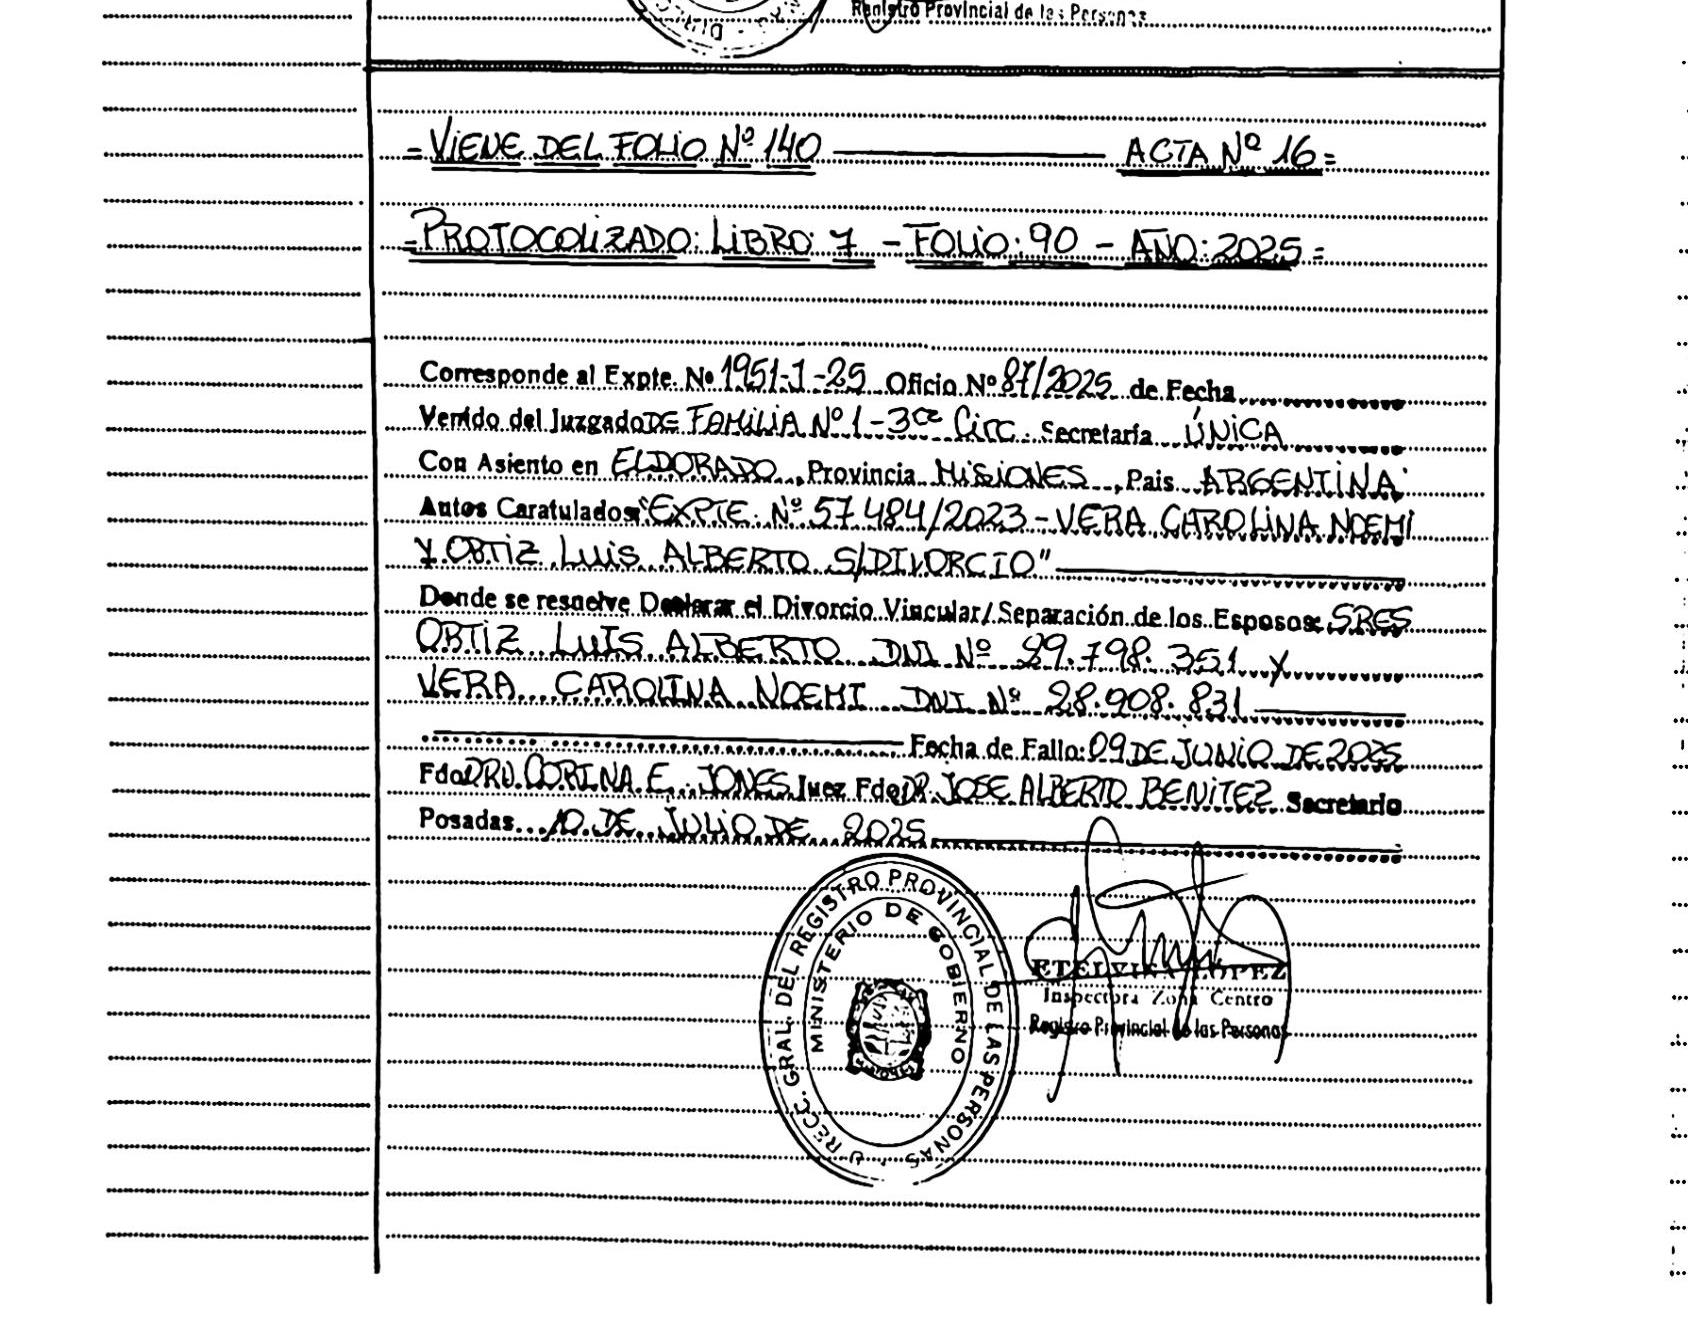 Registro Provincial de las Personas
= VIENE DEL FOLIO Nº 140 ACTA Nº 16 =
= PROTOCOLIZADO: LIBRO: 7 - FOLIO: 90 - AÑO: 2025 =
Corresponde al Expte. Nº 1951-J-25 Oficio Nº 87/2025 de Fecha
Venido del Juzgado DE FAMILIA Nº 1 - 3ra Circ. Secretaría ÚNICA
Con Asiento en ELDORADO, Provincia MISIONES, Pais ARGENTINA
Autos Caratulados: "EXPTE. Nº 57484/2023 - VERA CAROLINA NOEMI
Y ORTIZ LUIS ALBERTO S/DIVORCIO"
Donde se resuelve Declarar el Divorcio Vincular/Separación de los Esposos: SRES
ORTIZ LUIS ALBERTO DNI Nº 29.798.351 Y
VERA CAROLINA NOEMI DNI Nº 28.908.831
Fecha de Fallo: 09 DE JUNIO DE 2025
Fdo. DRA. CORINA E. JONES Juez Fdo. DR. JOSE ALBERTO BENITEZ Secretario
Posadas, 10 DE JULIO DE 2025
GRAL. DEL REGISTRO PROVINCIAL DE LAS PERSONAS
MINISTERIO DE GOBIERNO
ETELVINA LOPEZ
Inspectora Zona Centro
Registro Provincial de las Personas